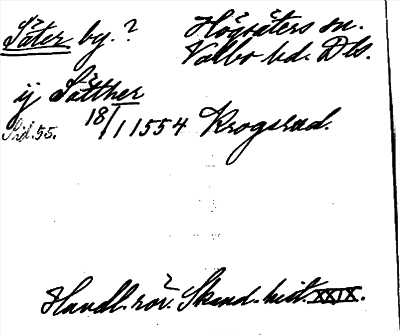 Säter by.?
Högsäters sn.
Valbo hd. Dls.
ij Sätther
Sid. 55. 18/1 1554 Krogsrud.
Handl. rör. Skand. hist. XXIX.